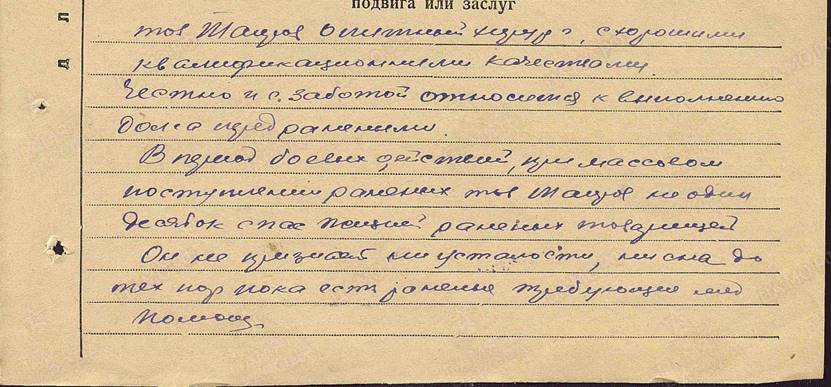 подвига или заслуг
тов Тащов опытный хирург, с хорошими
квалификационными качествами.
Честно и с заботой относится к выполнению
долга перед ранеными.
В период боевых действий, при массовом
поступлении раненых тов Тащов не один
десяток спас жизней раненых товарищей
Он не признает ни усталости, ни сна до
тех пор пока есть раненые требующие мед
помощ